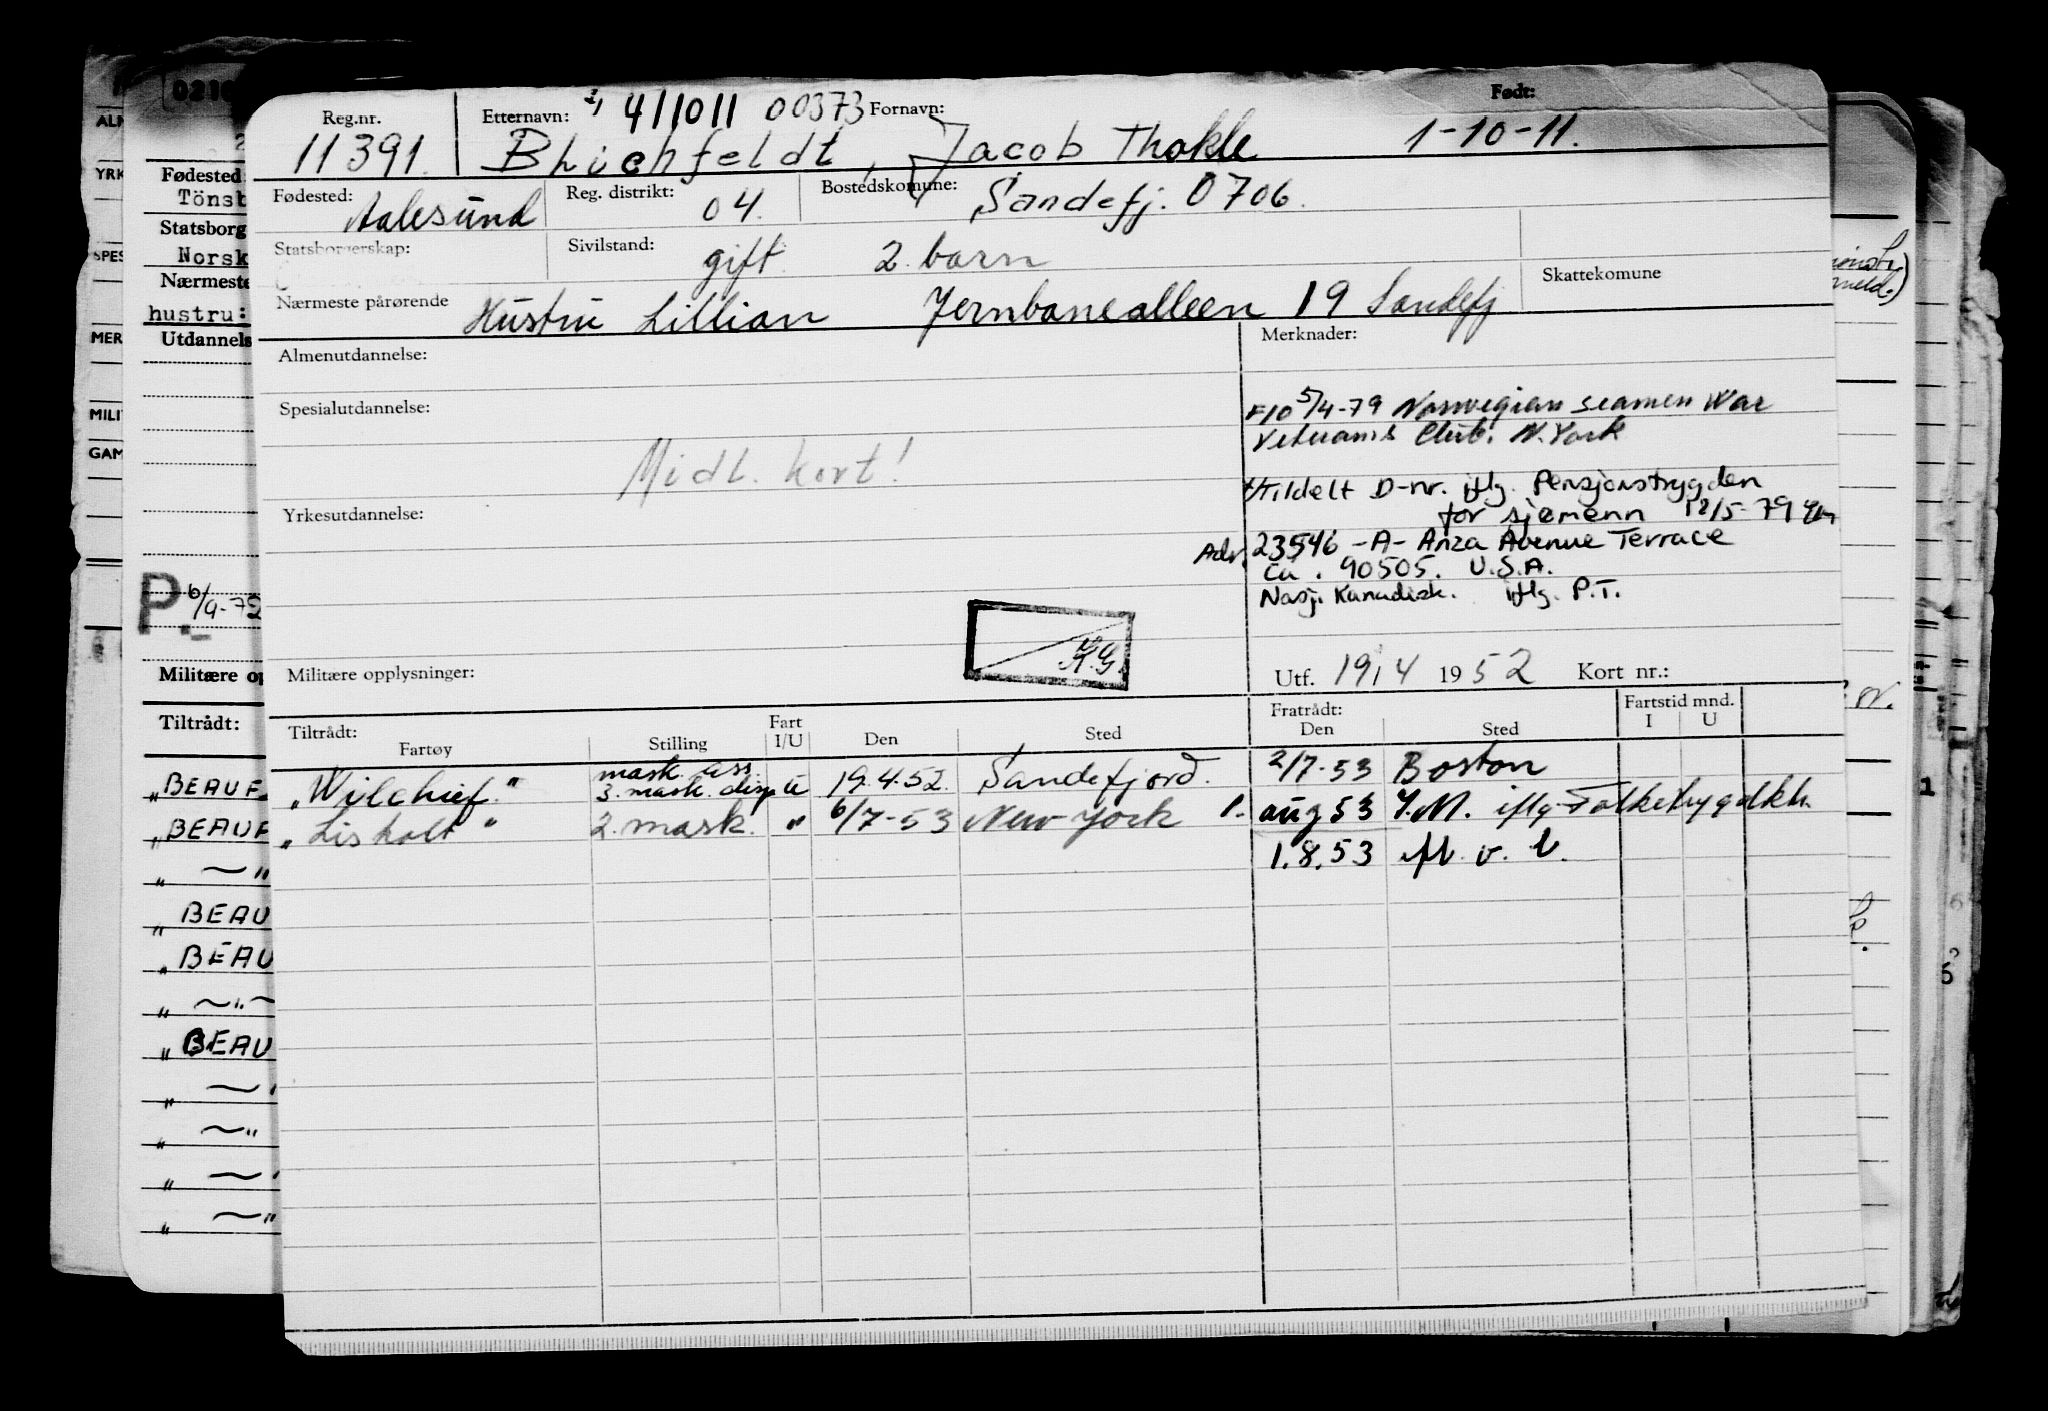 Reg.nr. Etternavn: 411011 00373 Fornavn: Født:
11391. Blichfeldt, Jacob Thokle 1-10-11.
Fødested: Aalesund Reg. distrikt: 04. Bostedskomune: Sandefj. 0706.
Statsborgerskap: Sivilstand: gift. 2 barn
Nærmeste pårørende Hustru Lillian Jernbanealleen 19 Sandefj Skattekomune
Almenutdannelse: Merknader:
Spesialutdannelse: F10 5/4-79 Norwegian seamen War
Veterans Club. N. York
Midl. kort! Tildelt D-nr. iflg. Pensjonstrygden
for sjømenn 12/5-79
Yrkesutdannelse: Adr. 23546 -A- Anza Avenue Terrace
Ca. 90505. U.S.A.
Nasj. Kanadisk. iflg. P.T.
H.G.
Militære opplysninger: Utf. 19/4 1952 Kort nr.:
Tiltrådt: Fart Fratrådt: Fartstid mnd.
Fartøy Stilling I/U Den Sted Den Sted I U
"Wilchief" mask. ass. 3. mask. disp u 19.4.52. Sandefjord. 2/7-53 Boston
"Lisholt" 2. mask. " 6/7-53 New York aug 53 Y.M. iflg. Folketrygdkh.
1.8.53 ifl. v. l.
0210
Fødested:
Tönsb
Statsborg
Norsk
Nærmeste
hustru:
Utdannels
P. 6/9-72
Militære op
Tiltrådt:
"BEAUF
"BEAUF
" — "
" BEAU
" BEAU
" — " —
" BEAU
" —
" — "
" —
" — "
YRK
SPES
MER
MILI
GAM